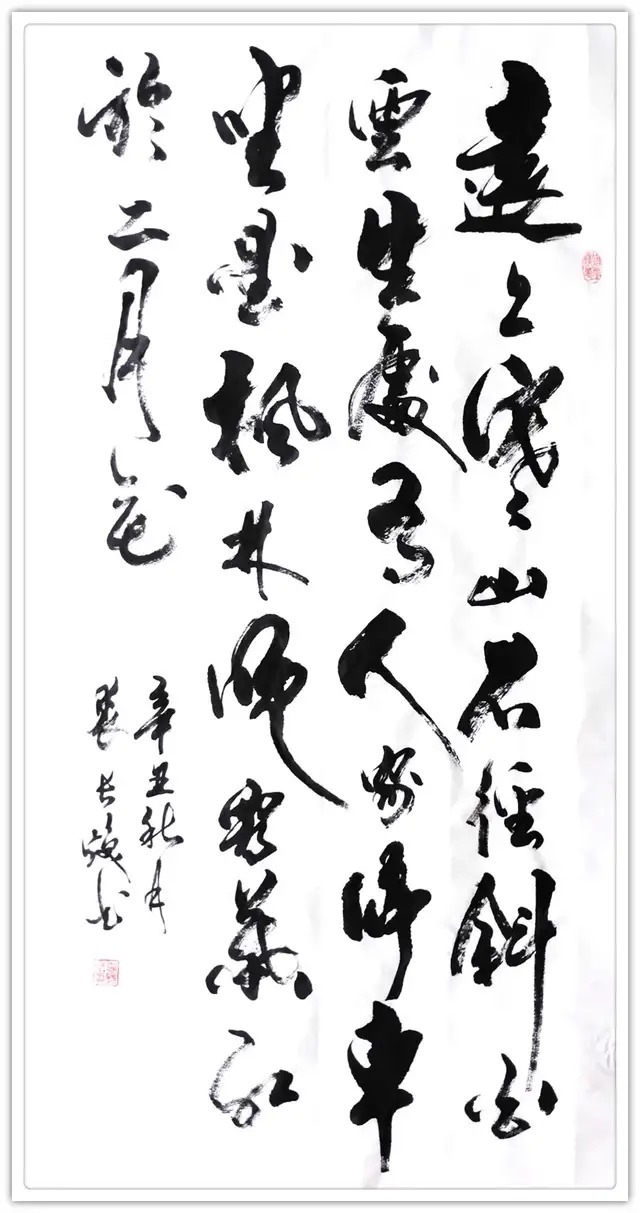 遠上寒山石徑斜白
雲生處有人家停車
坐愛楓林晚霜葉紅
於二月花
辛丑秋月
长书